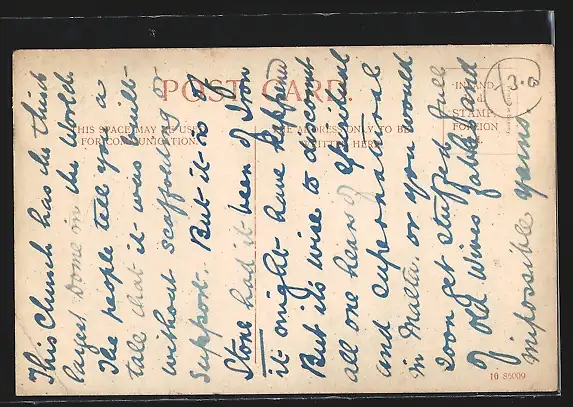 This Church has the third
largest Dome in the World.
The people tell you a
tale that it was built
without scaffolding or
support. But it is of
Stone had it been of Iron
it might have happened
But it is wise to discount
all one hears of Spiritual
and supernatural
in Malta, or you would
soon get stuffed full
of old Wives fables and
impossible yarns
POST CARD.
THIS SPACE MAY BE USED
FOR COMMUNICATION
THE ADDRESS ONLY TO BE
WRITTEN HERE
INLAND
½d.
STAMP.
FOREIGN
10 85009